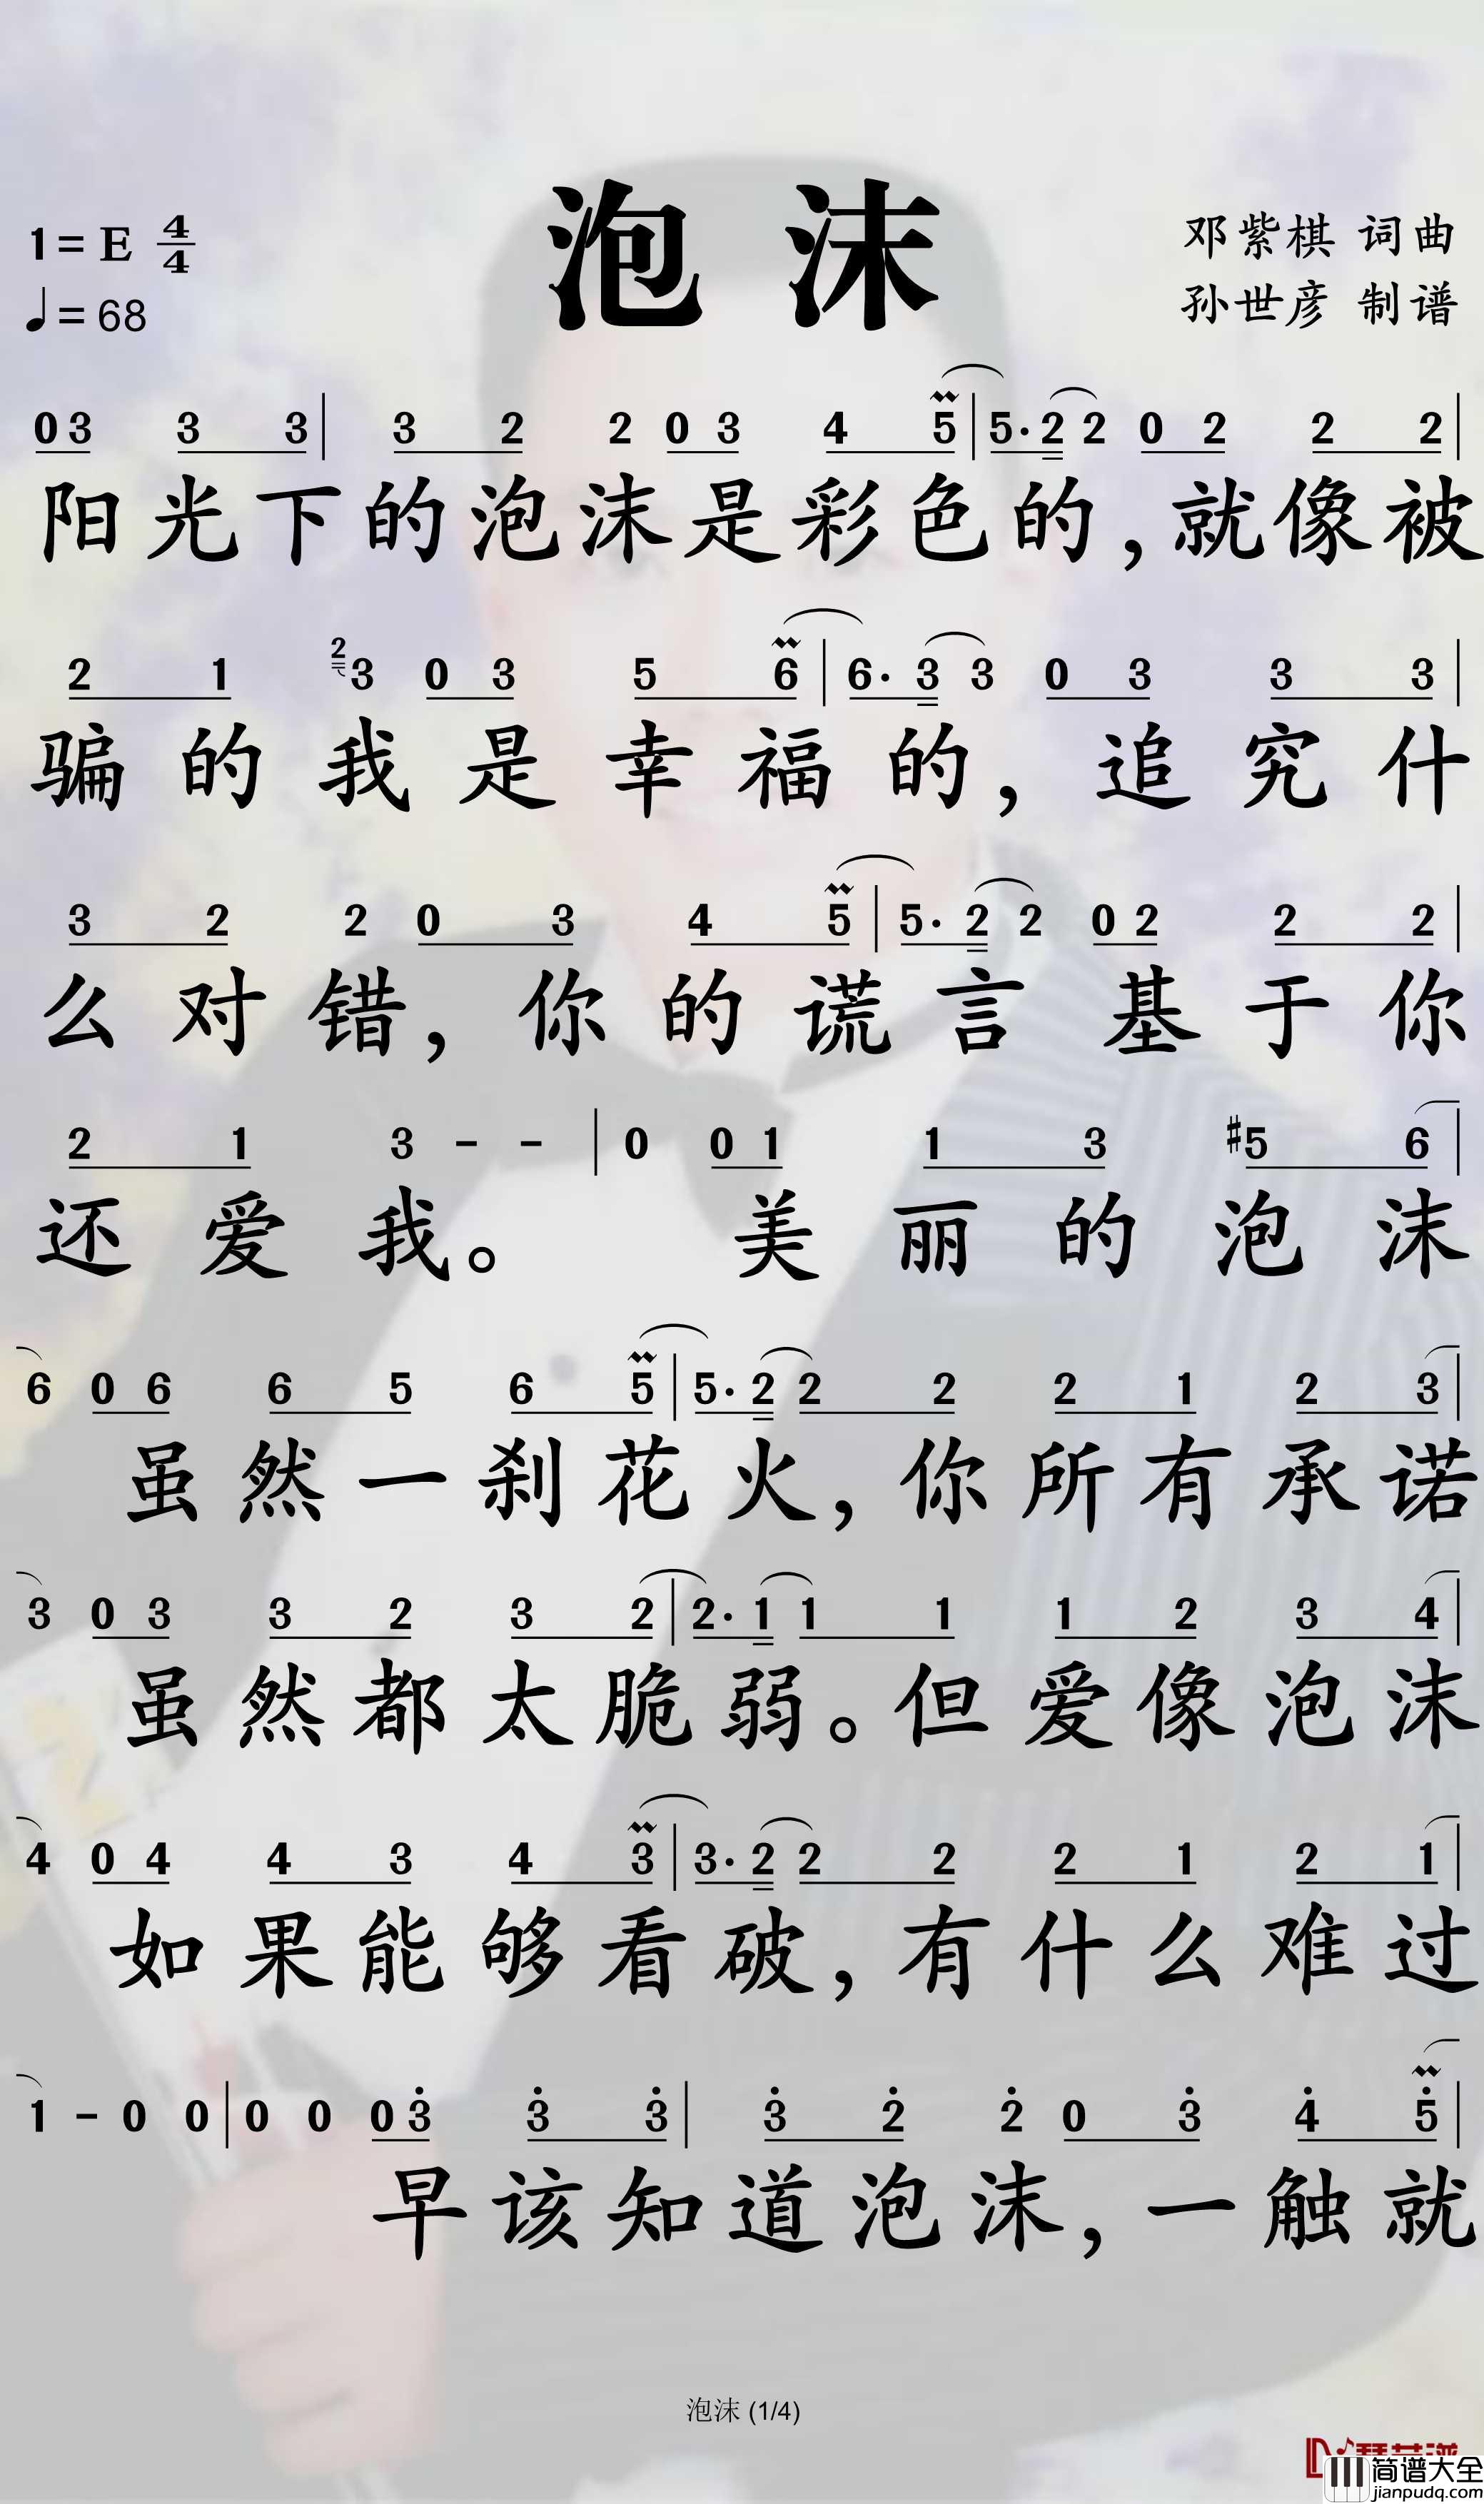 泡沫
1=E 4/4
♩=68
邓紫棋 词曲
孙世彦 制谱
0 3 3 3 | 3 2 2 0 3 4 5 | 5· 2 2 0 2 2 2 |
阳光下的泡沫是彩色的,就像被
2 1 2 3 0 3 5 6 | 6· 3 3 0 3 3 3 |
骗的我是幸福的,追究什
3 2 2 0 3 4 5 | 5· 2 2 0 2 2 2 |
么对错,你的谎言基于你
2 1 3 - - | 0 0 1 1 3 #5 6 |
还爱我。美丽的泡沫
6 0 6 6 5 6 5 | 5· 2 2 2 2 1 2 3 |
虽然一刹花火,你所有承诺
3 0 3 3 2 3 2 | 2· 1 1 1 1 2 3 4 |
虽然都太脆弱。但爱像泡沫
4 0 4 4 3 4 3 | 3· 2 2 2 2 1 2 1 |
如果能够看破,有什么难过
1 - 0 0 | 0 0 0 3̇ 3̇ 3̇ | 3̇ 2̇ 2̇ 0 3̇ 4̇ 5̇ |
早该知道泡沫,一触就
泡沫 (1/4)
简谱大全
jianpudq.com